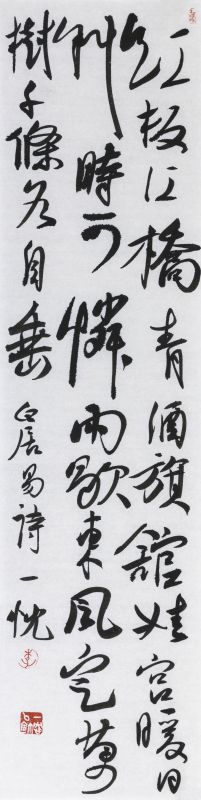 紅板江橋青酒旗館娃宮暖日
斜時可憐雨歇東風定萬
樹千條各自垂 白居易詩 一忱
李